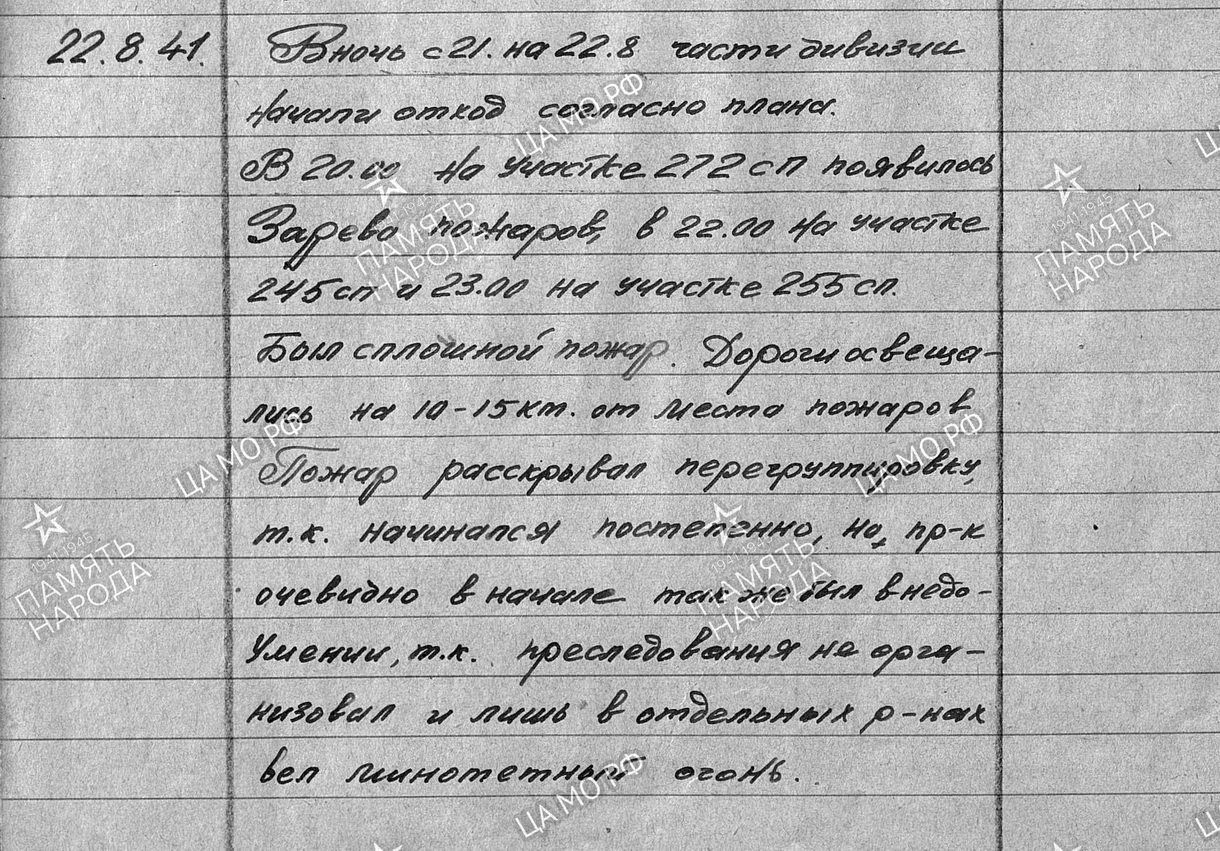 22.8.41. В ночь с 21. на 22.8 части дивизии
начали отход согласно плана.
В 20.00 на участке 272 сп появилось
Зарево пожаров, в 22.00 на участке
245 сп и 23.00 на участке 255 сп.
Был сплошной пожар. Дороги освеща-
лись на 10-15 км. от места пожаров
Пожар расскрывал перегруппировку,
т.к. начинался постепенно, но, пр-к
очевидно в начале так же был в недо-
умении, т.к. преследования не орга-
низовал и лишь в отдельных р-нах
вел минометный огонь.
ЦА МО РФ
ЦА МО РФ
ЦА МО РФ
ЦА МО РФ
1941-1945
ПАМЯТЬ
НАРОДА
1941-1945
ПАМЯТЬ
НАРОДА
1941-1945
ПАМЯТЬ
НАРОДА
1941-1945
ПАМЯТЬ
НАРОДА